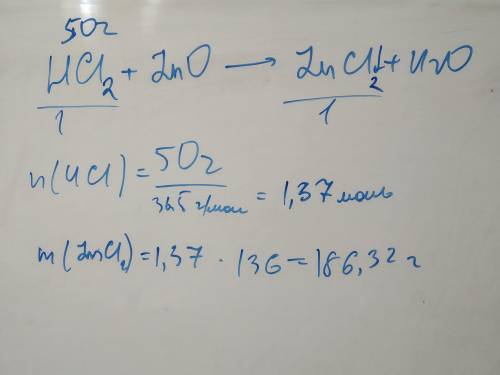 50г
HCl₂ + ZnO → ZnCl₂ + H₂O
1 1
n(HCl) = 50г / 36,5 г/моль = 1,37 моль
m(ZnCl₂) = 1,37 · 136 = 186,32 г